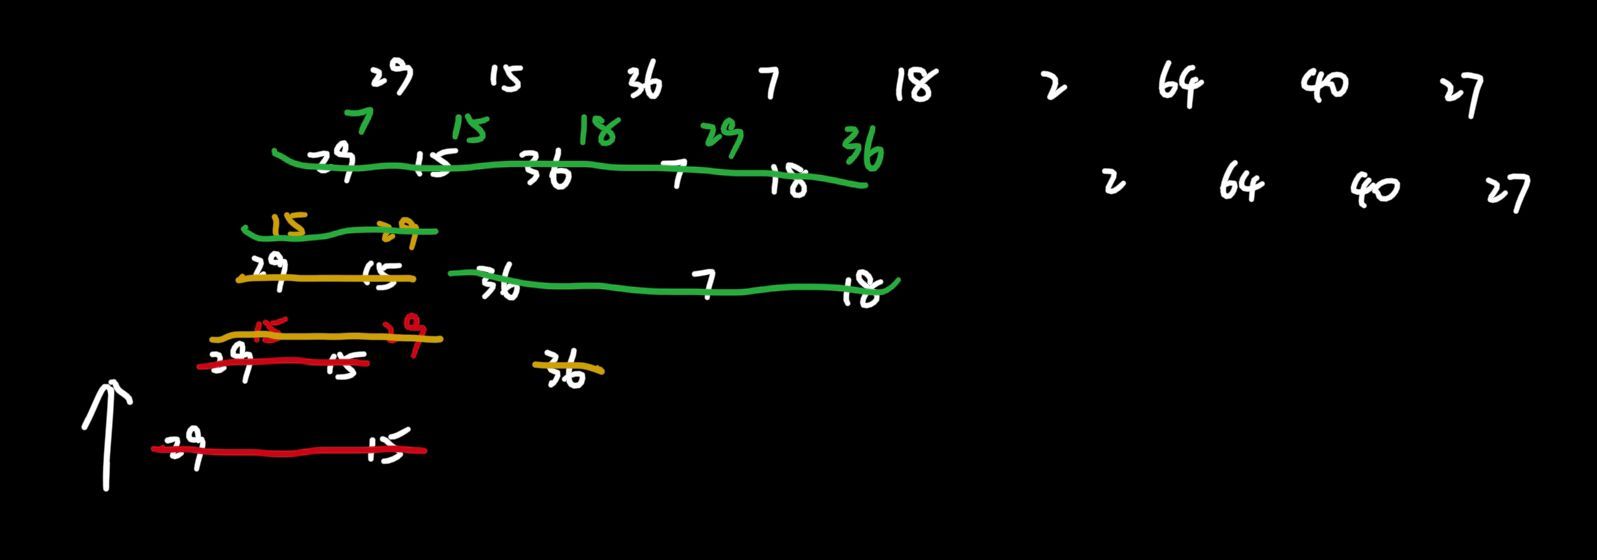 29 15 36 7 18 2 64 40 27
7 15 18 29 36
29 15 36 7 18 2 64 40 27
15 29
29 15 36 7 18
15 29
29 15 36
29 15